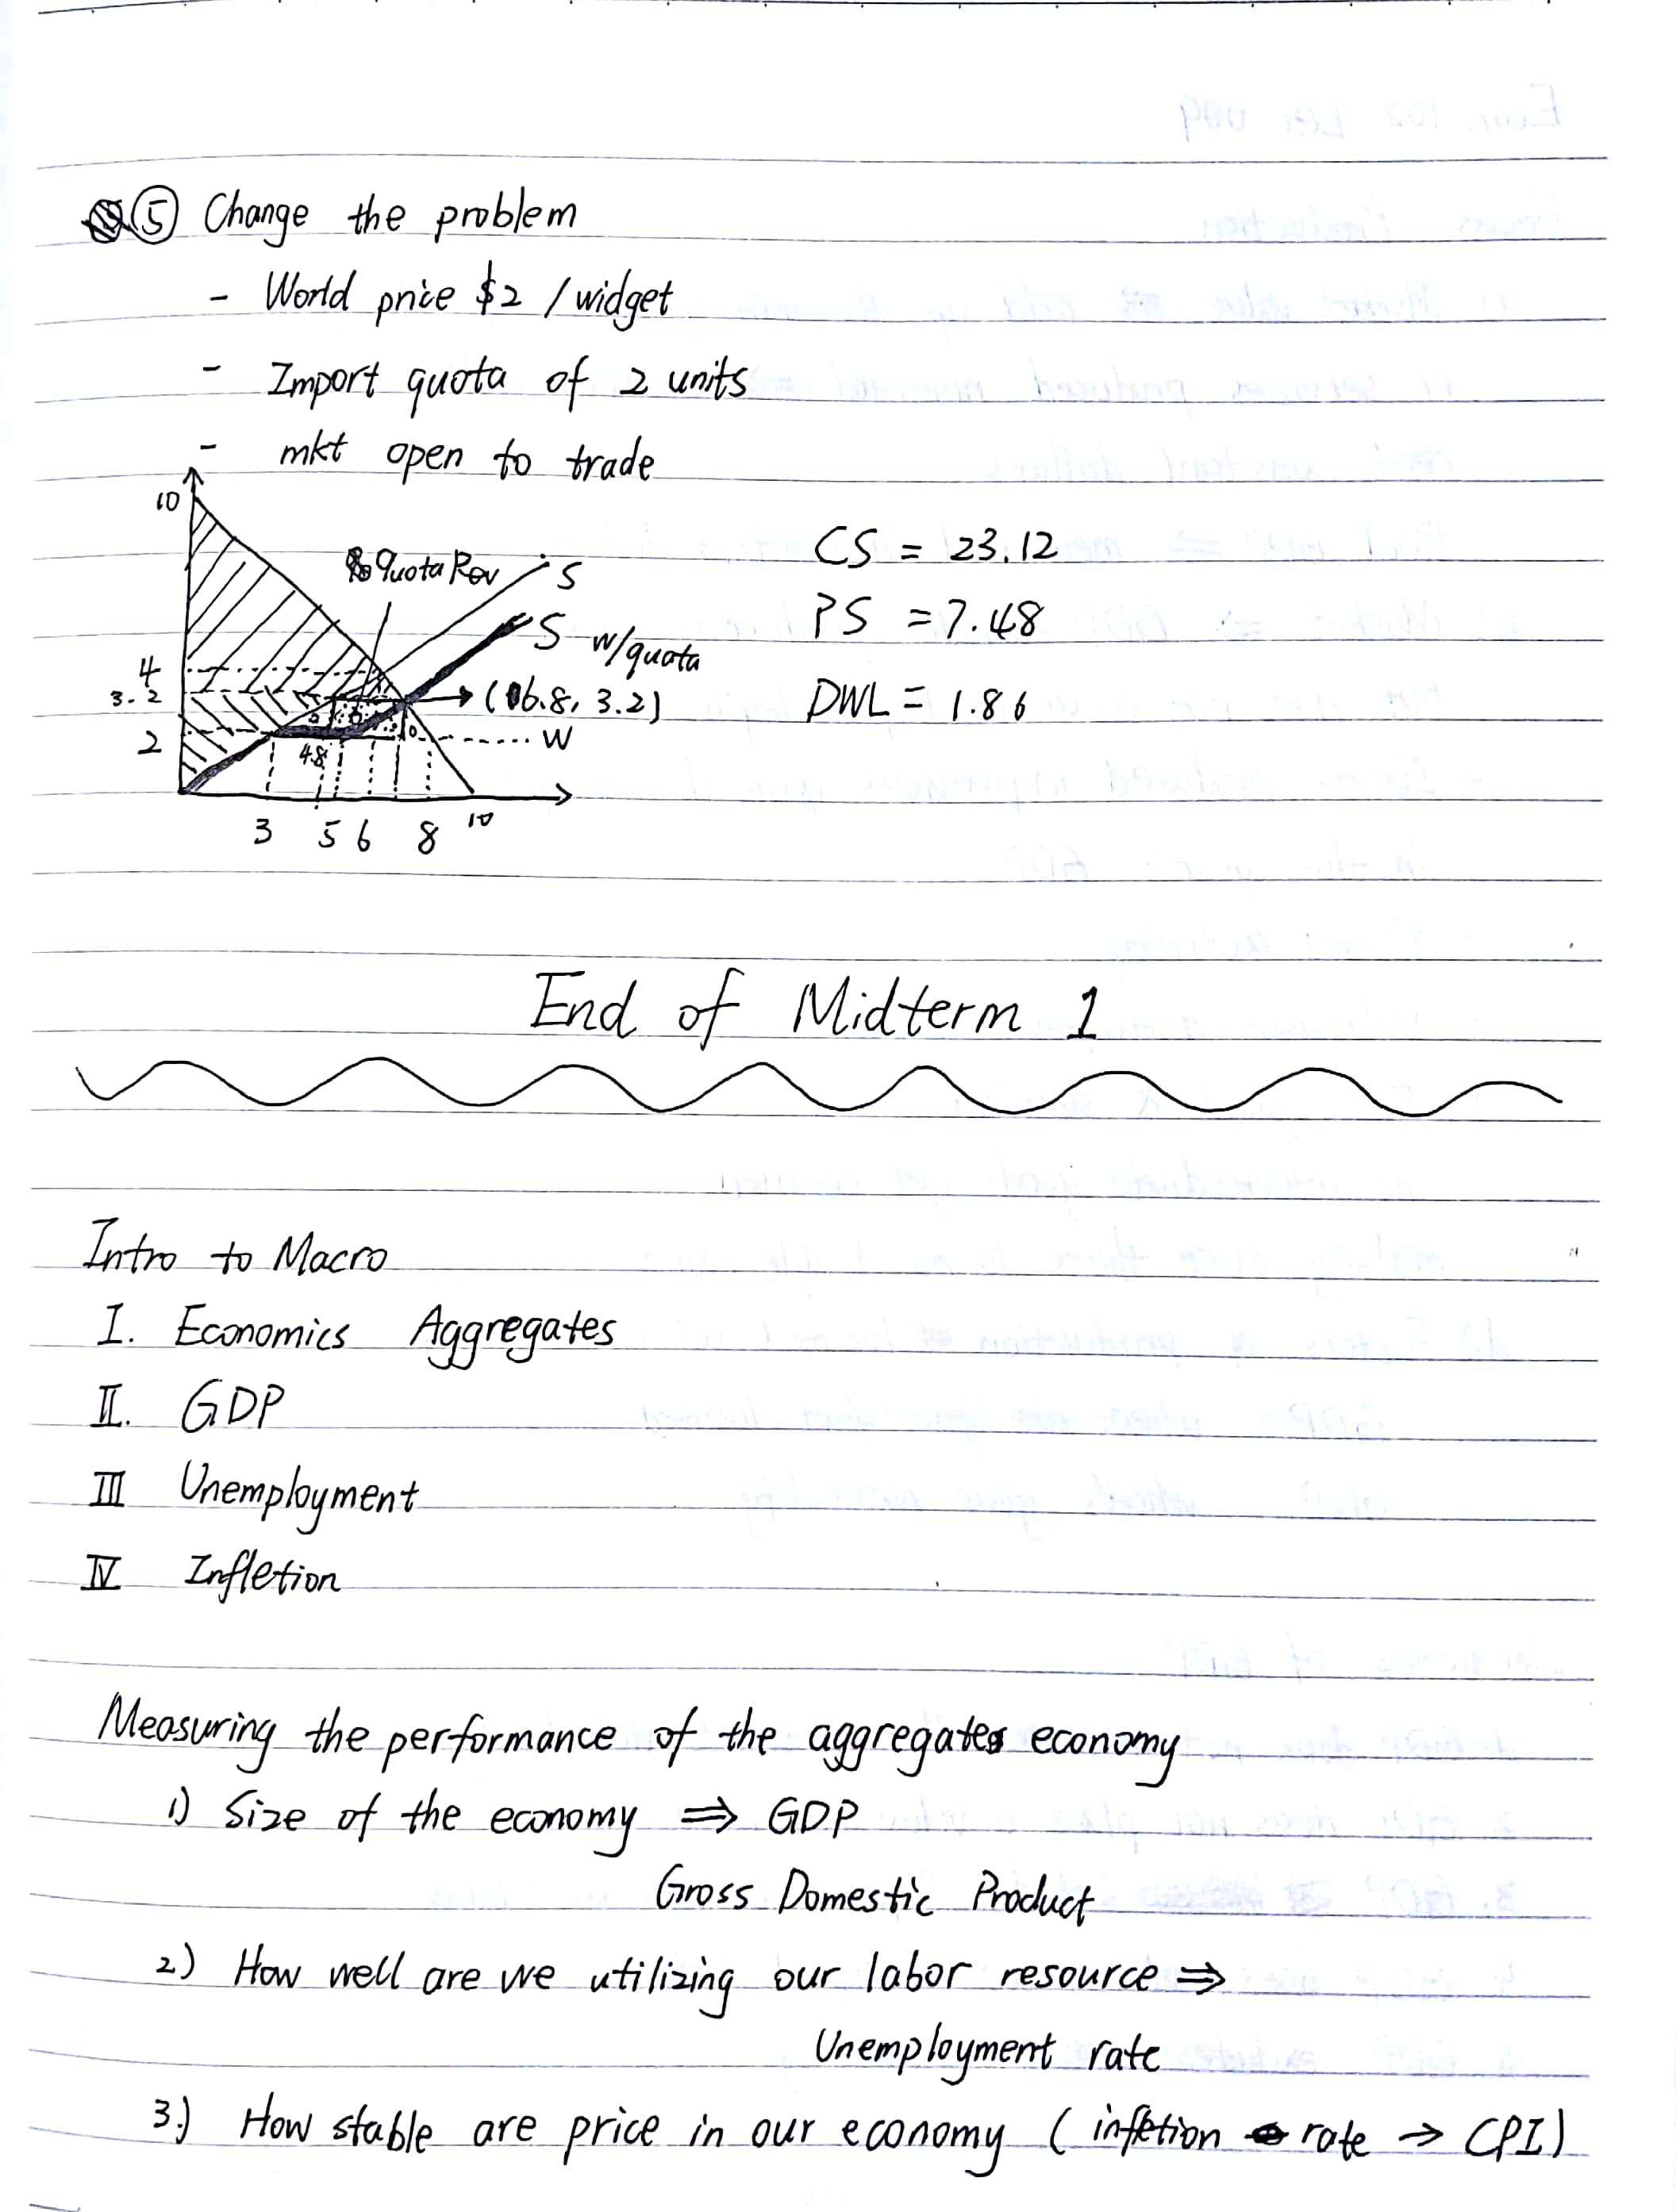 ⑤ Change the problem
- World price $2 / widget
- Import quota of 2 units
- mkt open to trade
10
Quota Rev
S
S w/quota
4
3.2
(6.8, 3.2)
2
W
4.8
3 5 6 8 10
CS = 23.12
PS = 7.48
DWL = 1.86
End of Midterm 1
Intro to Macro
I. Economics Aggregates
II. GDP
III Unemployment
IV Infletion
Measuring the performance of the aggregates economy
1) Size of the economy ⇒ GDP
Gross Domestic Product
2) How well are we utilizing our labor resource ⇒
Unemployment rate
3.) How stable are price in our economy ( infletion rate → CPI)